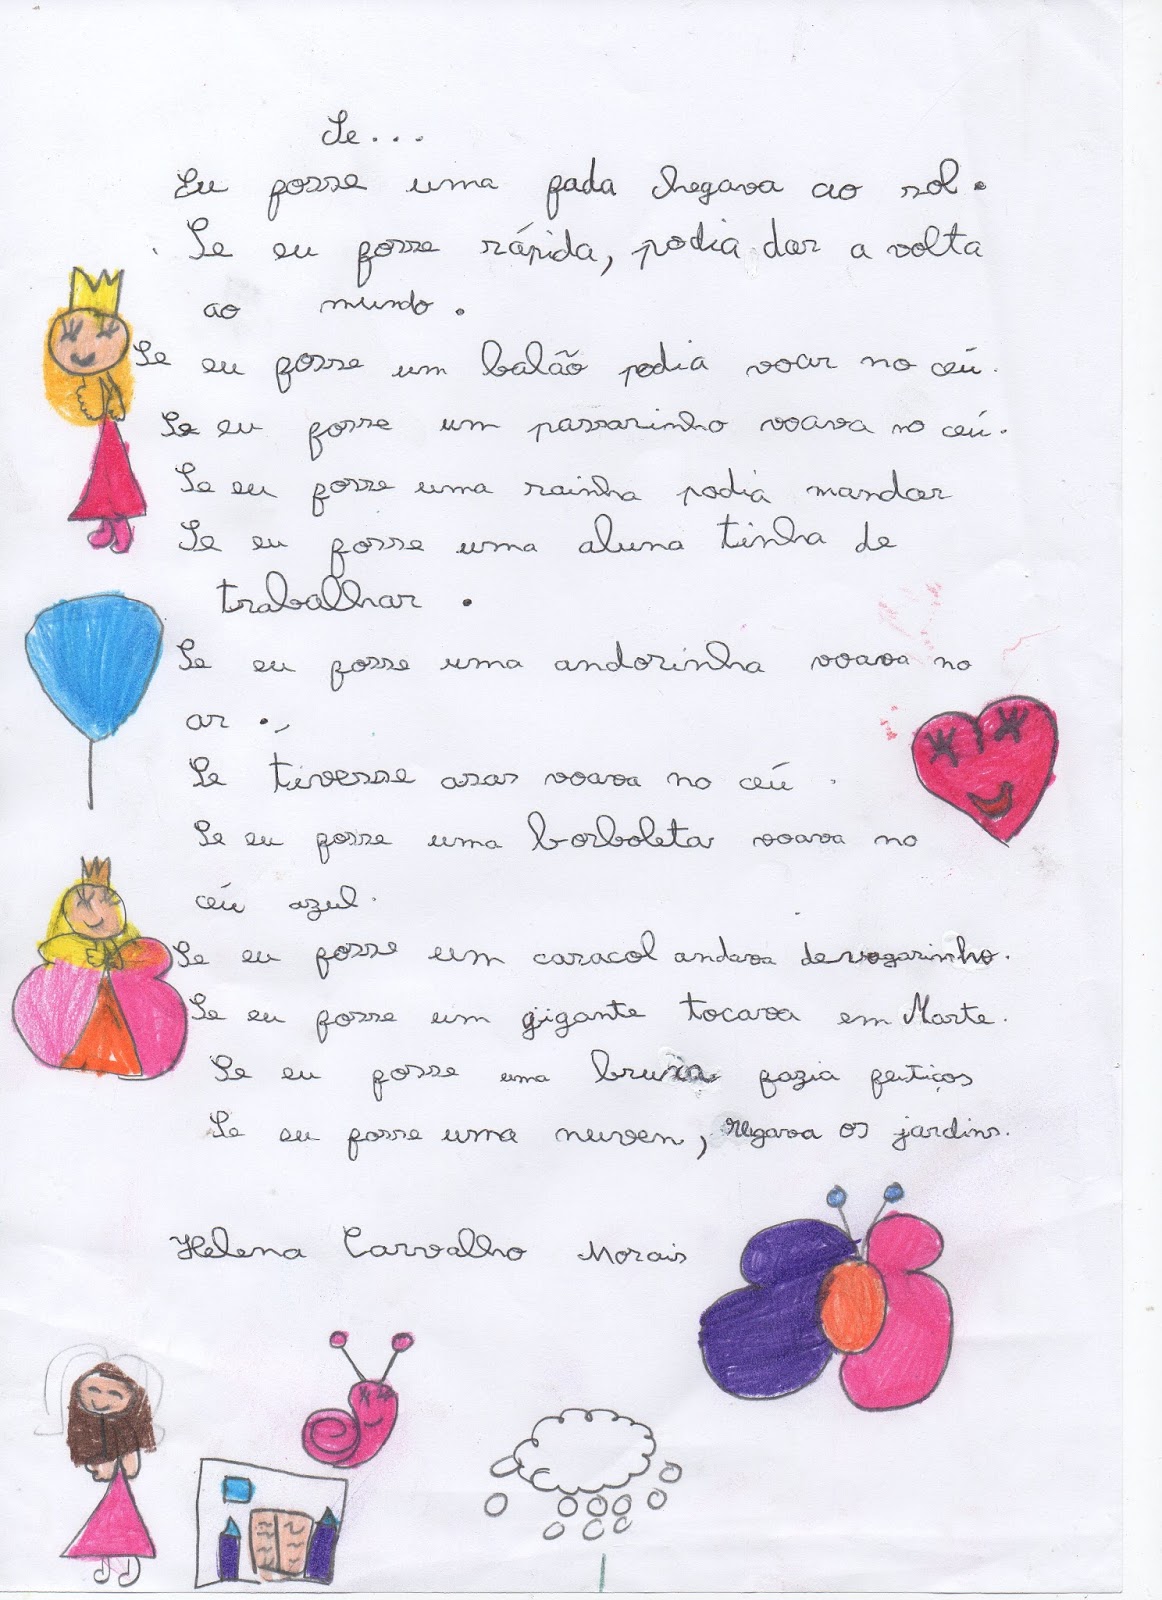 Se...
Eu fosse uma fada chegava ao sol.
Se eu fosse rápida, podia dar a volta
ao mundo.
Se eu fosse um balão podia voar no céu.
Se eu fosse um passarinho voava no céu.
Se eu fosse uma rainha podia mandar
Se eu fosse uma aluna tinha de
trabalhar.
Se eu fosse uma andorinha voava no
ar.,
Se tivesse asas voava no céu.
Se eu fosse uma borboleta voava no
céu azul.
Se eu fosse um caracol andava devagarinho.
Se eu fosse um gigante tocava em Marte.
Se eu fosse uma bruxa fazia feitiços
Se eu fosse uma nuven, regava os jardins.
Helena Carvalho Morais